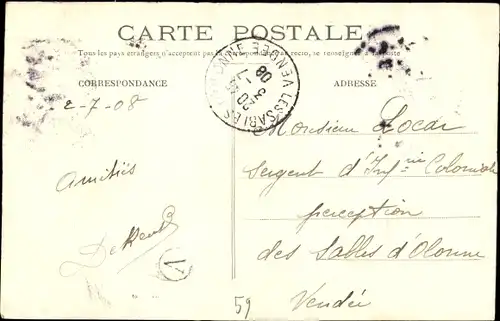 CARTE POSTALE
Tous les pays étrangers n'acceptent pas la correspondance au recto, se renseigner à la poste
CORRESPONDANCE
ADRESSE
LES SABLES D'OLONNE VENDEE
20 3-7 08
2-7-08
Monsieur Locar
Sergent d'Infrie Coloniale
perception
des Sables d'Olonne
Vendée
Amitiés
V
59